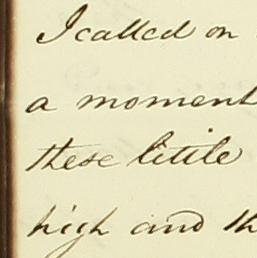 I called on
a moment
these little
high and th